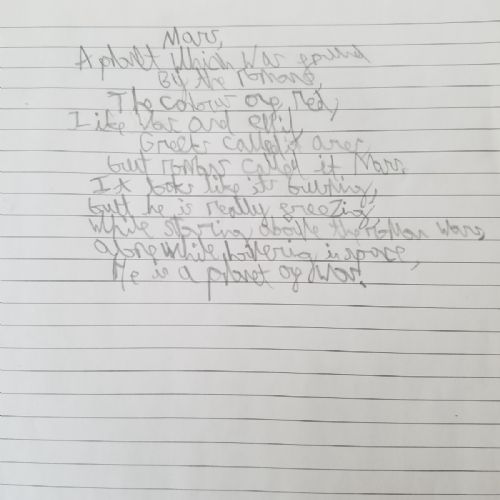 Mars,
A planet which was found
By the romans,
The colour of Red,
Like War and
Greeks called it ares
but romans called it Mars
It looks like it's burning,
butt he is really freezing,
While staring above the roman wars
along while in space,
He is a planet of War.